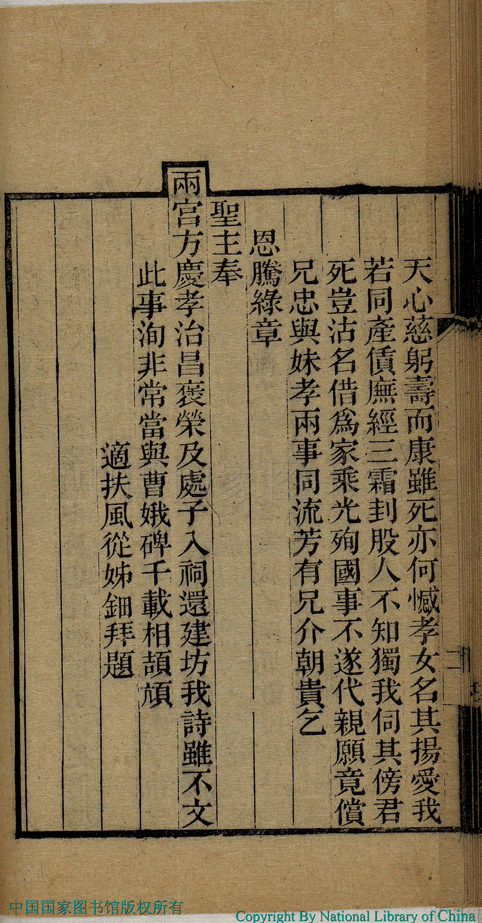 天心慈躬壽而康雖死亦何憾孝女名其揚愛我
若同產賃廡經三霜刲股人不知獨我伺其傍君
死豈沽名借為家乘光殉國事不遂代親願竟償
兄忠與妹孝兩事同流芳有兄介朝貴乞
恩騰綠章
聖主奉
兩宮方慶孝治昌褒榮及處子入祠還建坊我詩雖不文
此事洵非常當與曹娥碑千載相頡頏
適扶風從姊鈿拜題
中国国家图书馆版权所有
Copyright By National Library of China